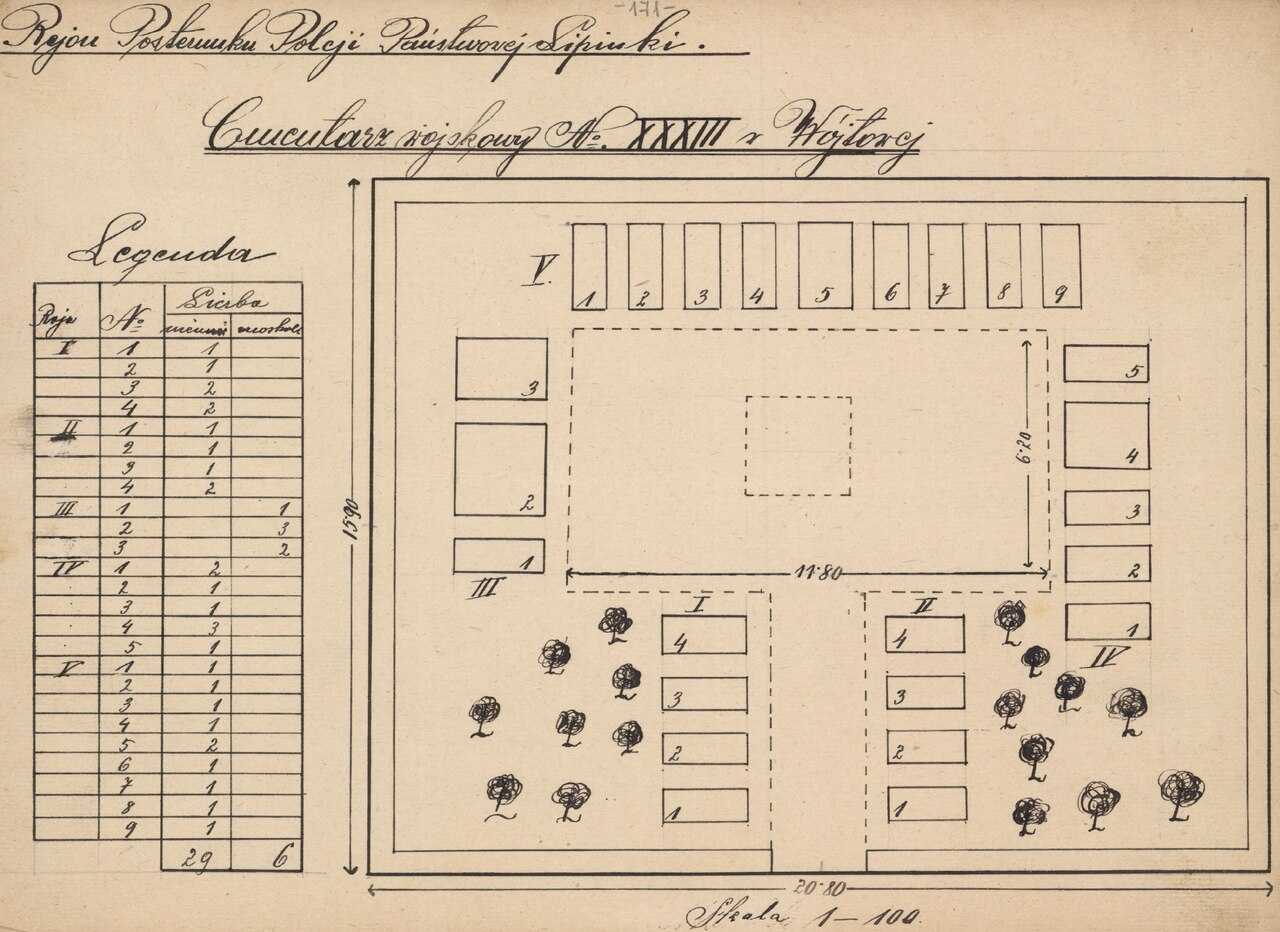 -171-
Rejon Posterunku Policji Państwovej Lipinki.
Cmentarz wojskowy No. XXXIII v Wójtovej
Legenda
Liczba
Reja No niemni moskali
I 1 1
2 1
3 2
4 2
II 1 1
2 1
3 1
4 2
III 1 1
2 3
3 2
IV 1 2
2 1
3 1
4 3
5 1
V 1 1
2 1
3 1
4 1
5 2
6 1
7 1
8 1
9 1
29 6
V.
1 2 3 4 5 6 7 8 9
3
2
1
III
5
4
3
2
1
IV
I
4
3
2
1
II
4
3
2
1
6·20
11·80
15·90
20·80
Skala 1–100.